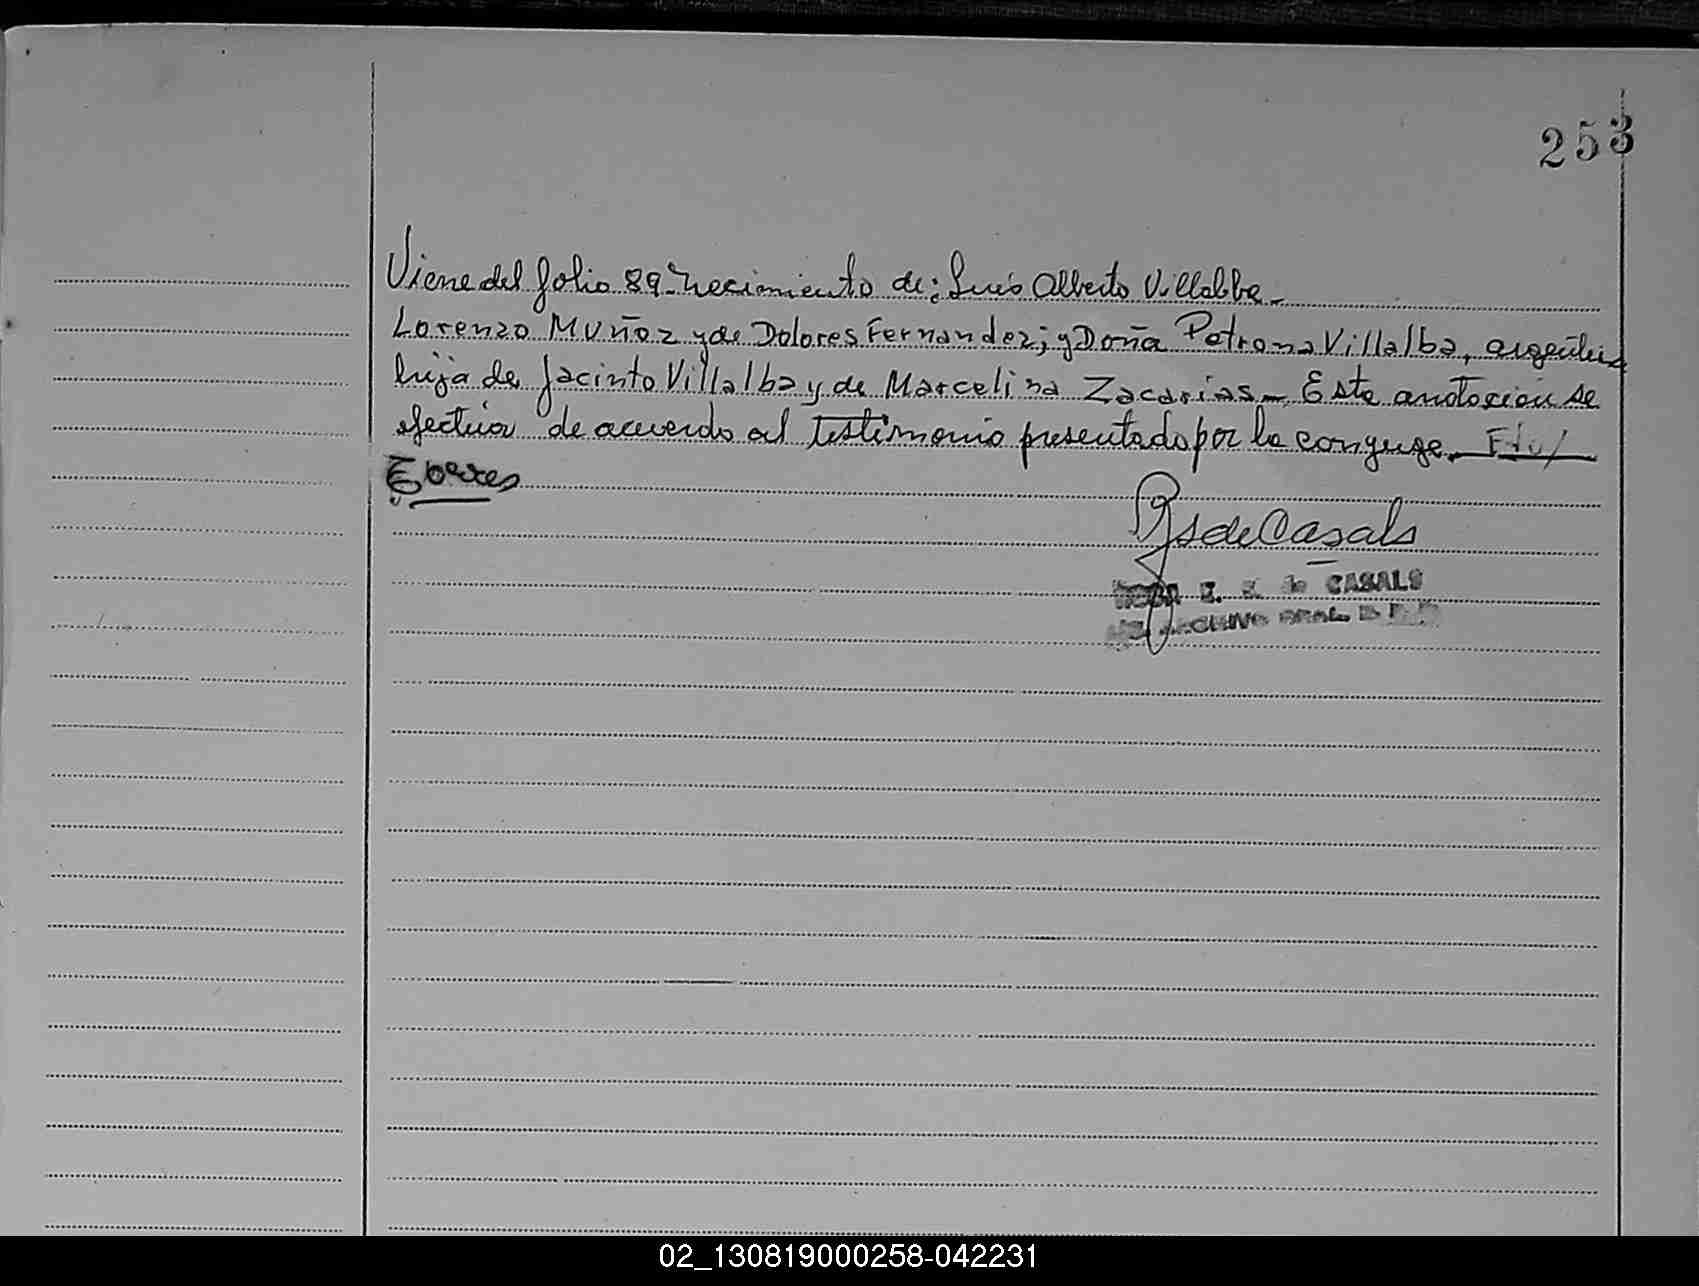 253
Viene del folio 89- necimiento de: Luis Alberto Villalba-
Lorenzo Muñoz y de Dolores Fernandez; y Doña Petrona Villalba, argentina
hija de Jacinto Villalba y de Marcelina Zacarias.- Esta anotacion se
efectua de acuerdo al testimonio presentado por la conyuge.
de Casals
E. de CASALS
ARCHIVO GRAL
02_130819000258-042231